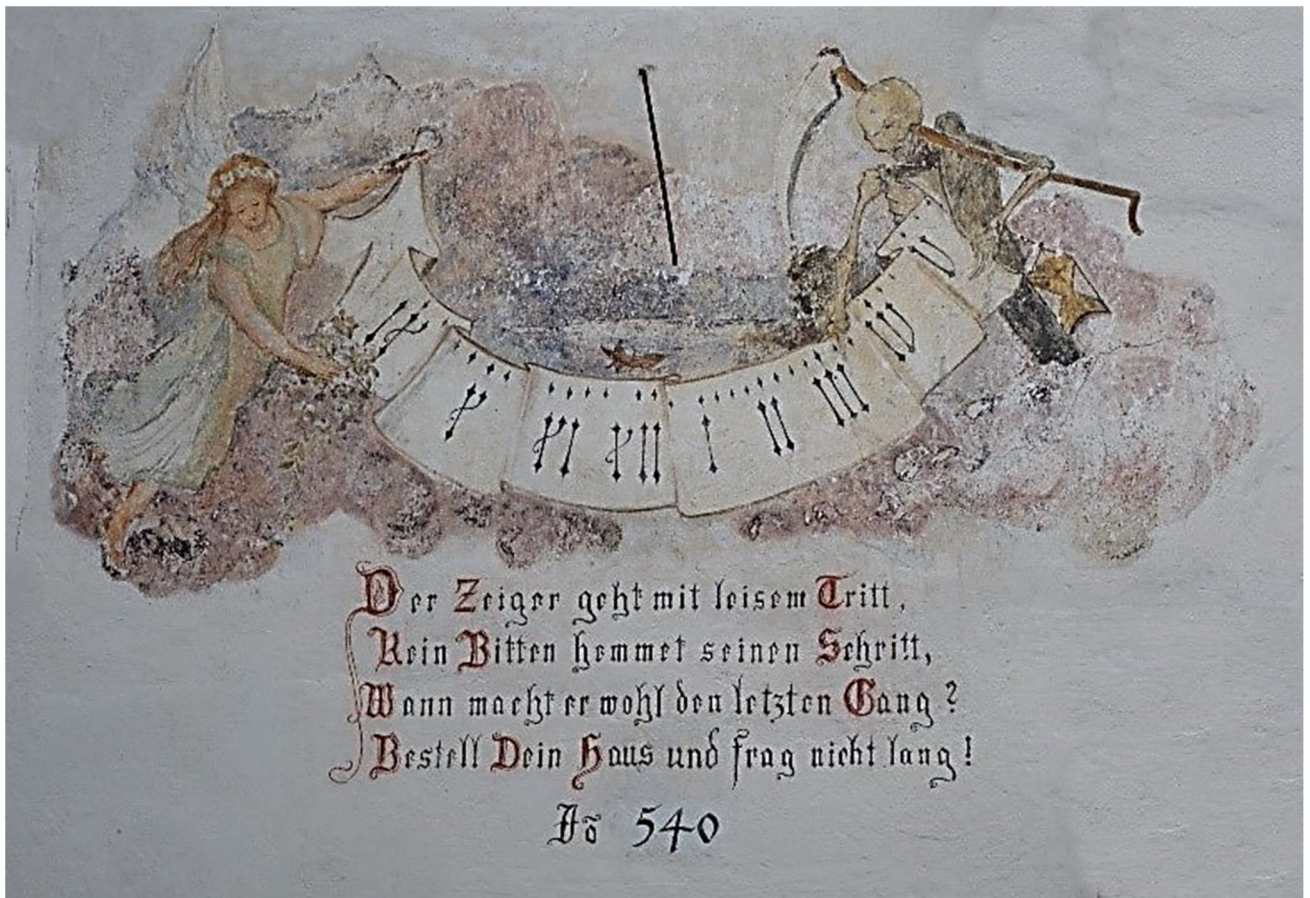 IX X XI XII I II III IV V
Der Zeiger geht mit leisem Tritt,
Kein Bitten hemmet seinen Schritt,
Wann macht er wohl den letzten Gang?
Bestell Dein Haus und frag nicht lang!
Aõ 540